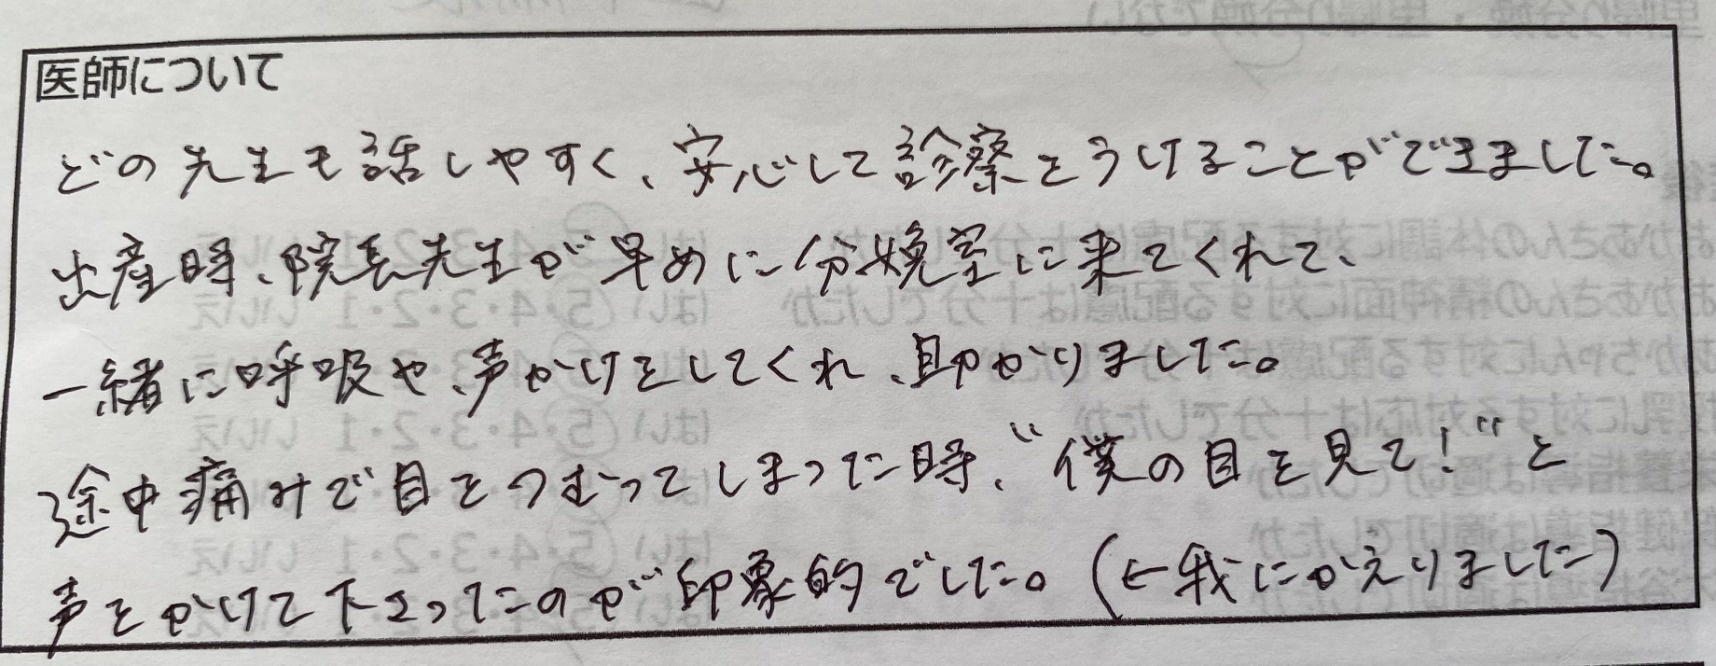 医師について
どの先生も話しやすく、安心して診察をうけることができました。
出産時、院長先生が早めに分娩室に来てくれて、
一緒に呼吸や、声かけをしてくれ、助かりました。
途中痛みで目をつむってしまった時、“僕の目を見て！”と
声をかけて下さったのが印象的でした。(←我にかえりました)